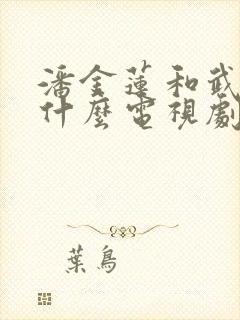 潘金蓮和武
什麼電視劇
葉鳥